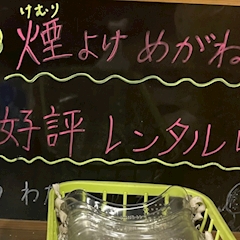 けむり
煙よけ めがね
好評 レンタル